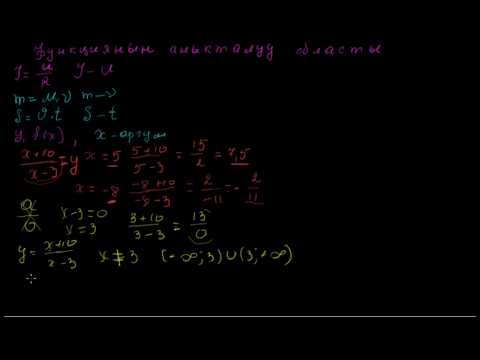 Функциянын аныкталуу областы
I = U/R I - U
m = M, V m - V
S = V·t S - t
y, f(x), x - аргум
(x+10)/(x-3) = y x = 5 (5+10)/(5-3) = 15/2 = 7,5
x = -8 (-8+10)/(-8-3) = 2/-11 = -2/11
a/0 x-3=0 x=3 (3+10)/(3-3) = 13/0
y = (x+10)/(x-3) x ≠ 3 (-∞; 3) ∪ (3; +∞)